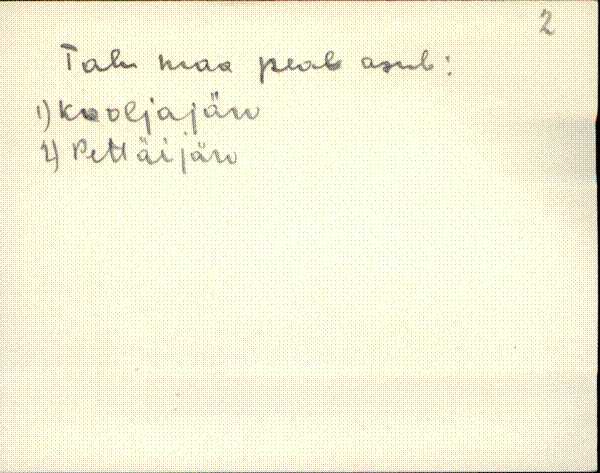 2
Talu maa peal asub:
1) Kooljajärv
2) Pettäijärv